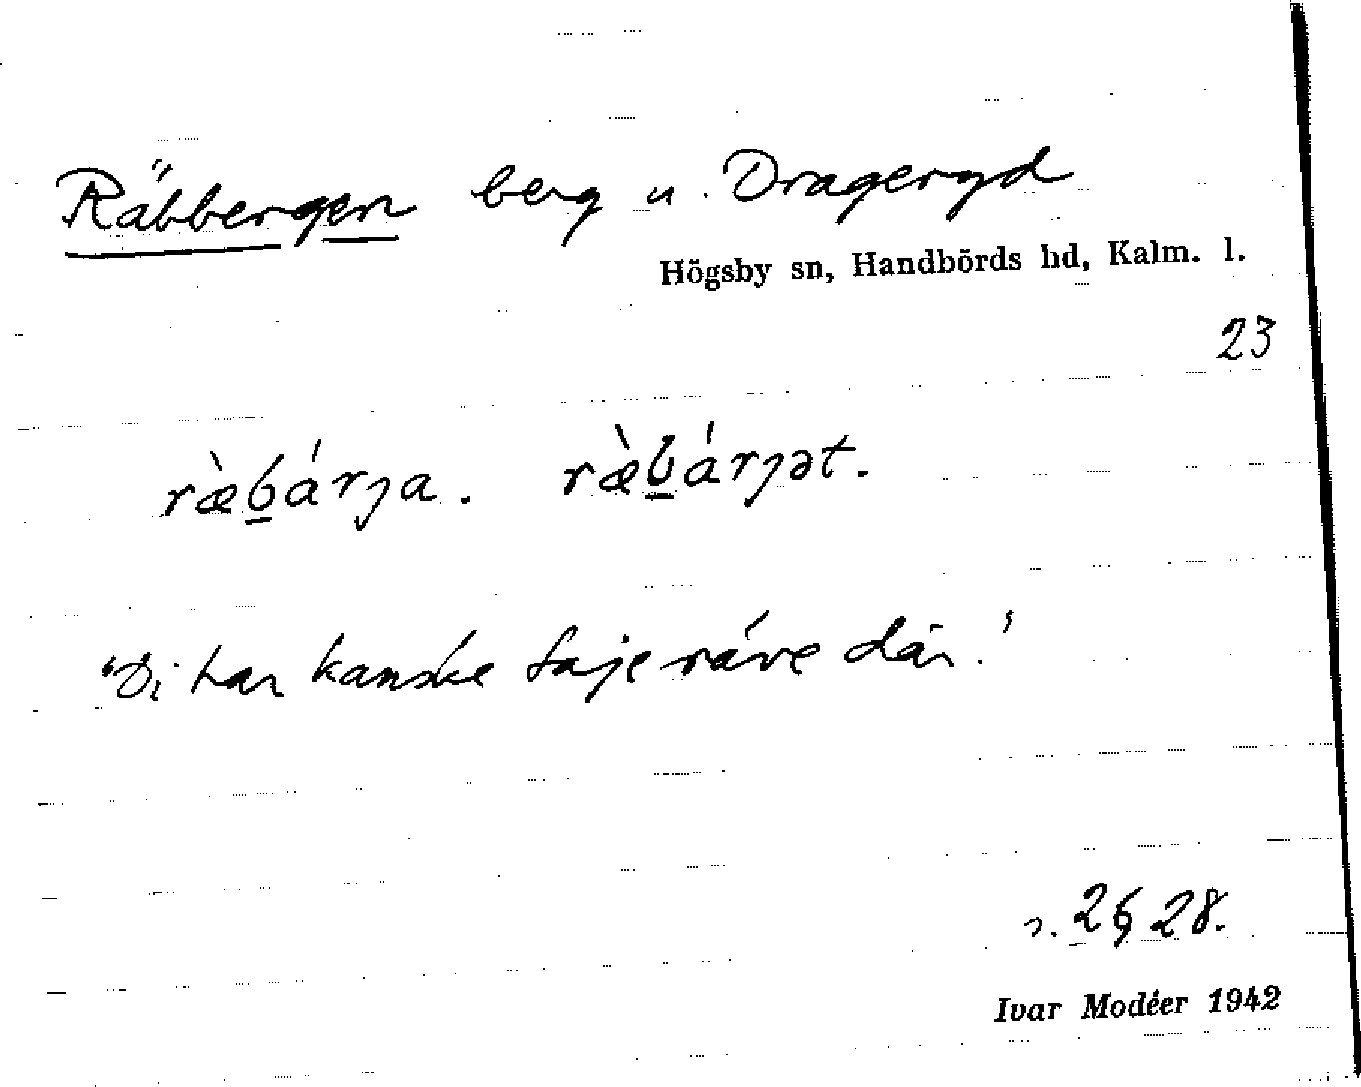 Räbbergen berg u. Drageryd
Högsby sn, Handbörds hd, Kalm. l.
23
ræ̀bárȷa. ræ̀bárȷət.
"Di har kanske taje räve där."
s. 28.
Ivar Modéer 1942